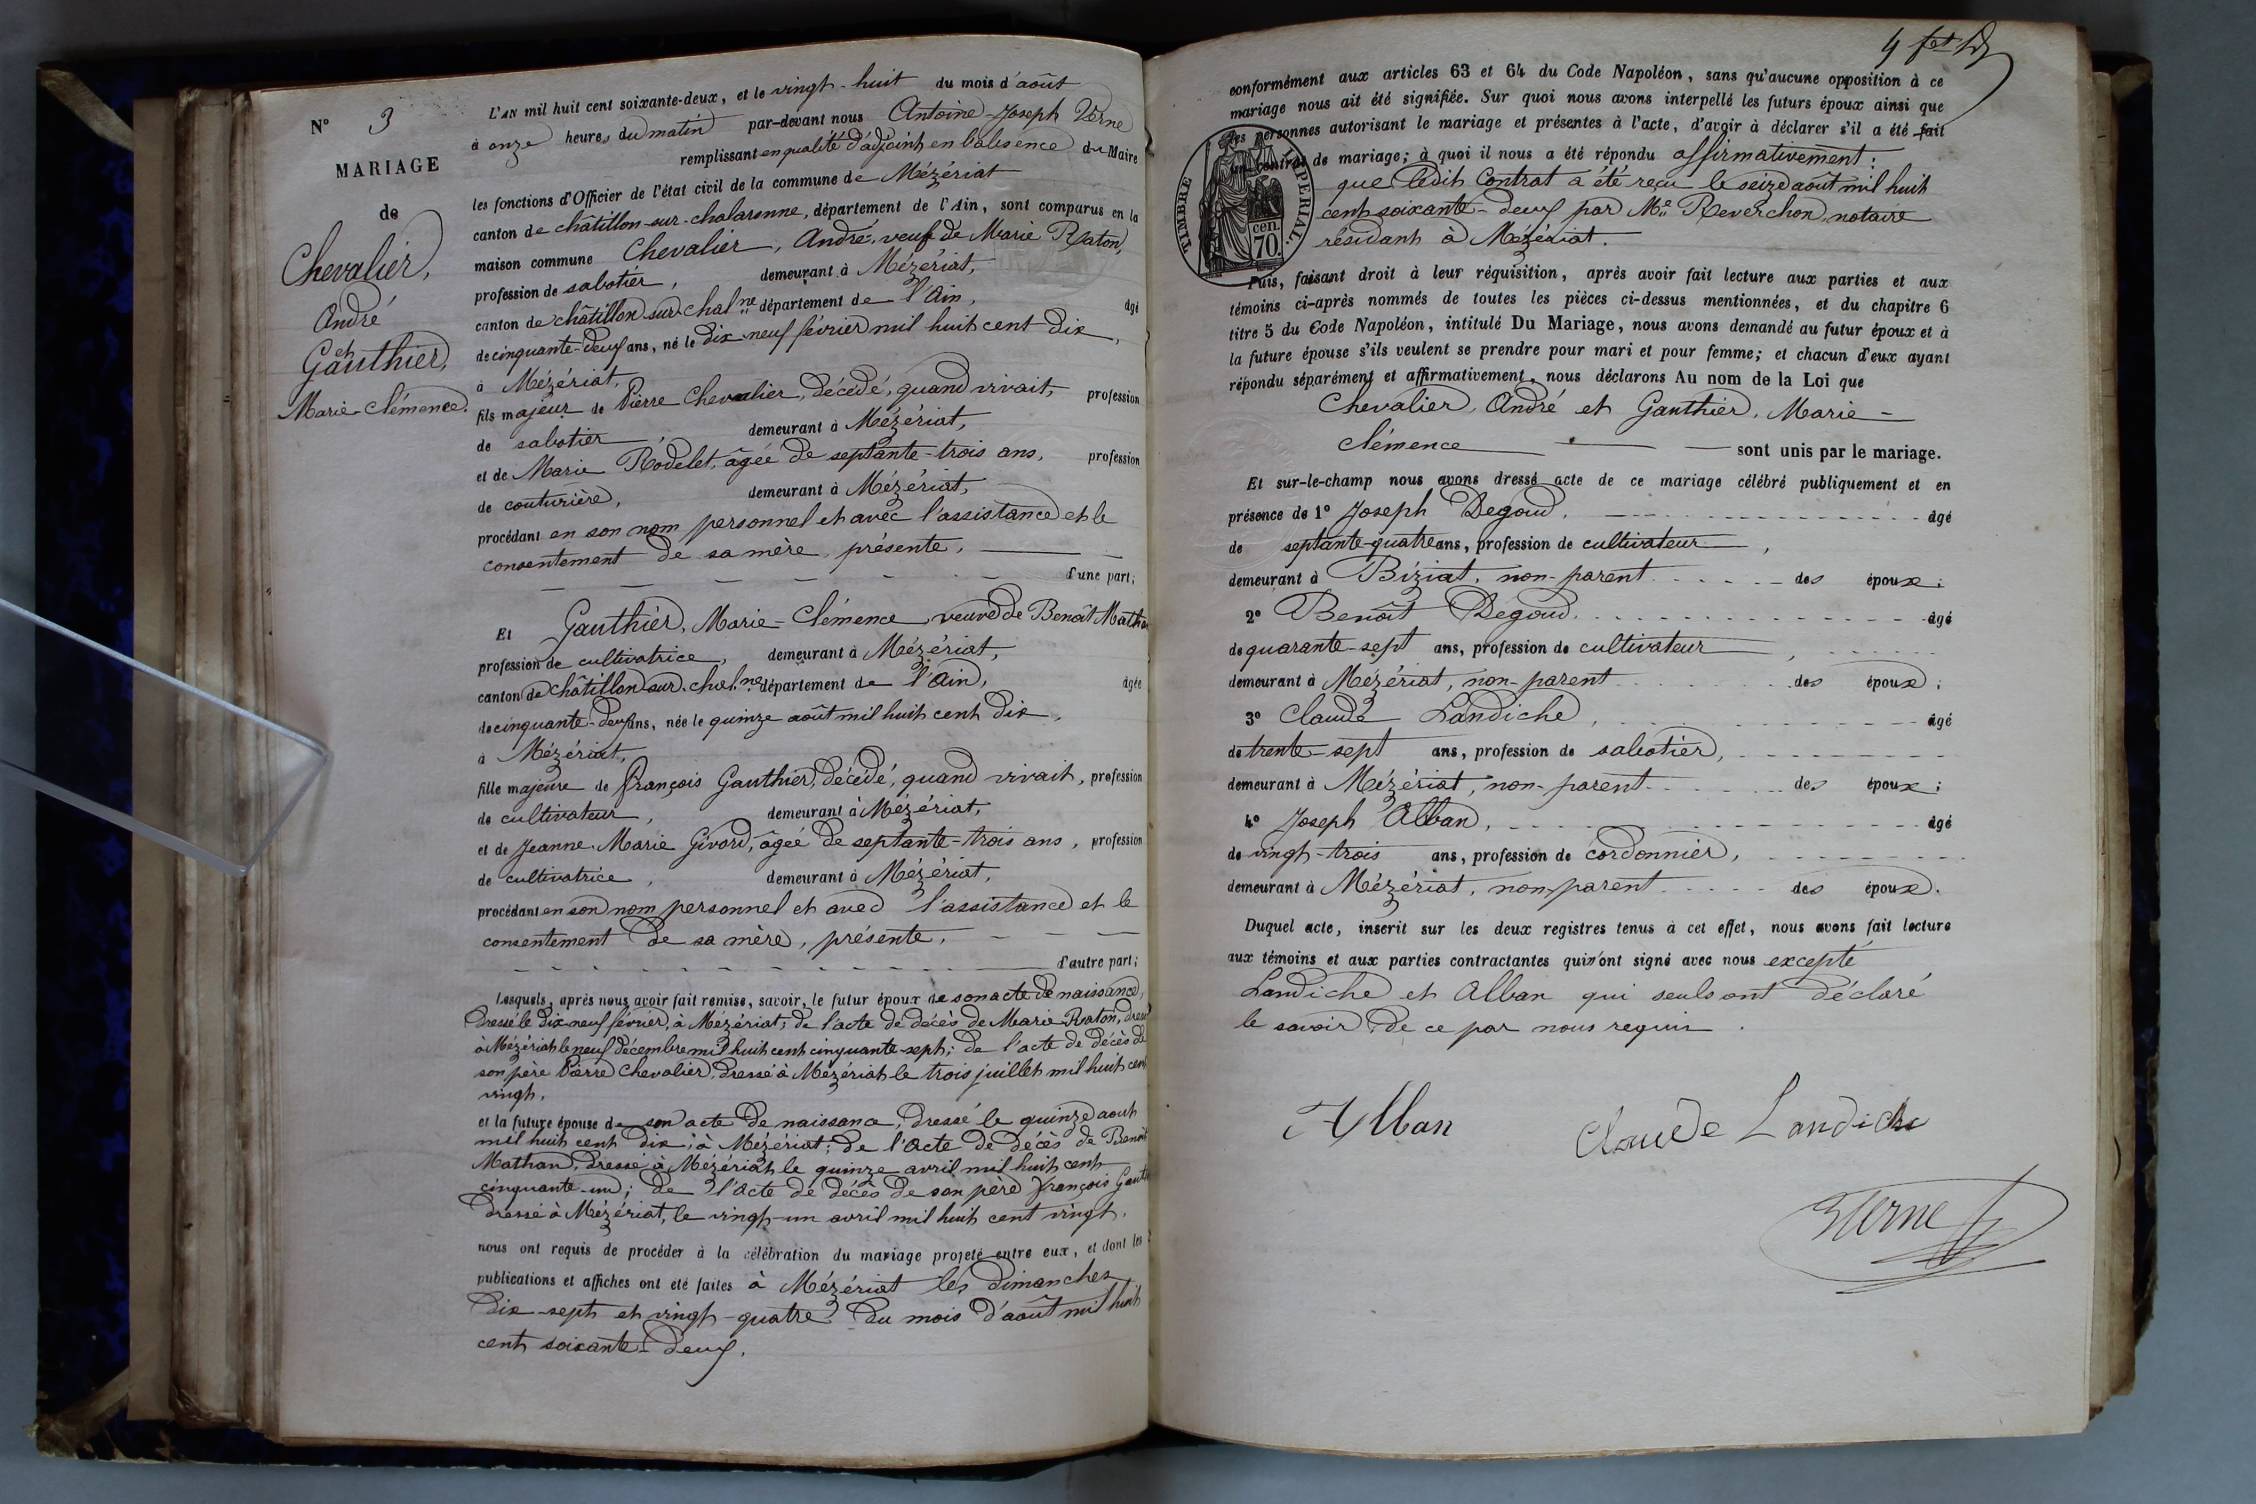 N° 3
MARIAGE
de
Chevalier,
André
et
Gauthier,
Marie-Clémence.
L'AN mil huit cent soixante-deux, et le vingt-huit du mois d'août
à onze heures du matin par-devant nous Antoine-Joseph Verne
remplissant en qualité d'adjoint en l'absence du Maire
les fonctions d'Officier de l'état civil de la commune de Mézériat
canton de châtillon-sur-chalaronne, département de l'Ain, sont comparus en la
maison commune Chevalier, André, veuf de Marie Raton,
profession de sabotier, demeurant à Mézériat,
canton de châtillon sur chal.ne département de l'Ain, âgé
de cinquante-deux ans, né le dix-neuf février mil huit cent dix,
à Mézériat,
fils majeur de Pierre Chevalier, décédé, quand vivait, profession
de sabotier, demeurant à Mézériat,
et de Marie Rodelet, âgée de septante-trois ans, profession
de couturière, demeurant à Mézériat,
procédant en son nom personnel et avec l'assistance et le
consentement de sa mère, présente,
d'une part;
Et Gauthier, Marie-Clémence, veuve de Benoît Mathan
profession de cultivatrice, demeurant à Mézériat,
canton de châtillon sur chal.ne département de l'Ain, âgée
de cinquante-deux ans, née le quinze août mil huit cent dix,
à Mézériat,
fille majeure de françois Gauthier, décédé, quand vivait, profession
de cultivateur, demeurant à Mézériat,
et de Jeanne Marie Givord, âgée de septante-trois ans, profession
de cultivatrice, demeurant à Mézériat,
procédant en son nom personnel et avec l'assistance et le
consentement de sa mère, présente,
d'autre part;
Lesquels, après nous avoir fait remise, savoir, le futur époux de son acte de naissance,
dressé le dix-neuf février, à Mézériat; de l'acte de décès de Marie Raton, dressé
à Mézériat le neuf décembre mil huit cent cinquante-sept; de l'acte de décès de
son père Pierre Chevalier, dressé à Mézériat le trois juillet mil huit cent
vingt,
et la future épouse de son acte de naissance, dressé le quinze aout
mil huit cent dix, à Mézériat; de l'acte de décès de Benoît
Mathan, dressé à Mézériat le quinze avril mil huit cent
cinquante-un; de l'acte de décès de son père françois Gauth
dressé à Mézériat, le vingt-un avril mil huit cent vingt.
nous ont requis de procéder à la célébration du mariage projeté entre eux, et dont les
publications et affiches ont été faites à Mézériat les dimanches
dix-sept et vingt-quatre du mois d'août mil huit
cent soixante-deux.
conformément aux articles 63 et 64 du Code Napoléon, sans qu'aucune opposition à ce
mariage nous ait été signifiée. Sur quoi nous avons interpellé les futurs époux ainsi que
les personnes autorisant le mariage et présentes à l'acte, d'avoir à déclarer s'il a été fait
un contrat de mariage; à quoi il nous a été répondu affirmativement:
que ledit Contrat a été reçu le seize août mil huit
cent soixante-deux par Me Reverchon, notaire
résidant à Mézériat.
TIMBRE IMPERIAL.
cen.
70.
Puis, faisant droit à leur réquisition, après avoir fait lecture aux parties et aux
témoins ci-après nommés de toutes les pièces ci-dessus mentionnées, et du chapitre 6
titre 5 du Code Napoléon, intitulé Du Mariage, nous avons demandé au futur époux et à
la future épouse s'ils veulent se prendre pour mari et pour femme; et chacun d'eux ayant
répondu séparément et affirmativement, nous déclarons Au nom de la Loi que
Chevalier, André et Gauthier, Marie-
Clémence sont unis par le mariage.
Et sur-le-champ nous avons dressé acte de ce mariage célébré publiquement et en
présence de 1° Joseph Degoud, âgé
de septante-quatre ans, profession de cultivateur,
demeurant à Biziat, non-parent des époux;
2° Benoît Degoud. âgé
de quarante-sept ans, profession de cultivateur,
demeurant à Mézériat, non-parent des époux;
3° Claude Landiche, âgé
de trente-sept ans, profession de sabotier,
demeurant à Mézériat, non-parent des époux;
4° Joseph Alban, âgé
de vingt-trois ans, profession de cordonnier,
demeurant à Mézériat, non-parent des époux.
Duquel acte, inscrit sur les deux registres tenus à cet effet, nous avons fait lecture
aux témoins et aux parties contractantes qui n'ont signé avec nous excepté
Landiche et Alban qui seuls ont déclaré
le savoir, de ce par nous requis.
Alban Claude Landiche
Verne